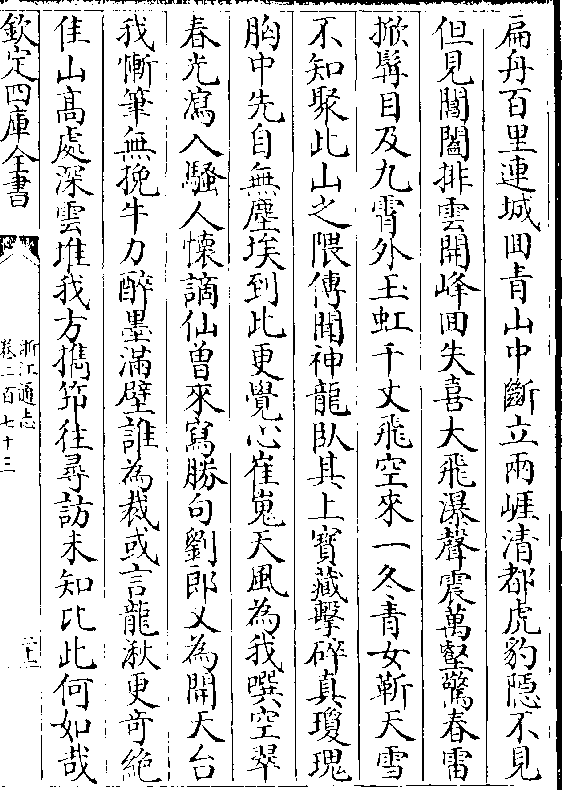 扁舟百里連城回青山中斷立兩崕清都虎豹隠不見
但見閶闔排雲開峰回失喜大飛瀑聲震萬壑驚春雷
掀髯目及九霄外玉虹千丈飛空來一冬青女靳天雪
不知聚此山之隈傳聞神龍臥其上寳藏擊碎真瓊瑰
胸中先自無塵埃到此更覺心崔嵬天風為我噀空翠
春光瀉入騷人懷謫仙曾來寫勝句劉郎又為開天台
我慚筆無挽牛力醉墨滿壁誰為裁或言龍湫更奇絶
佳山髙處深雲堆我方擕筇往尋訪未知比此何如哉
欽定四庫全書
浙江通志
卷二百七十三